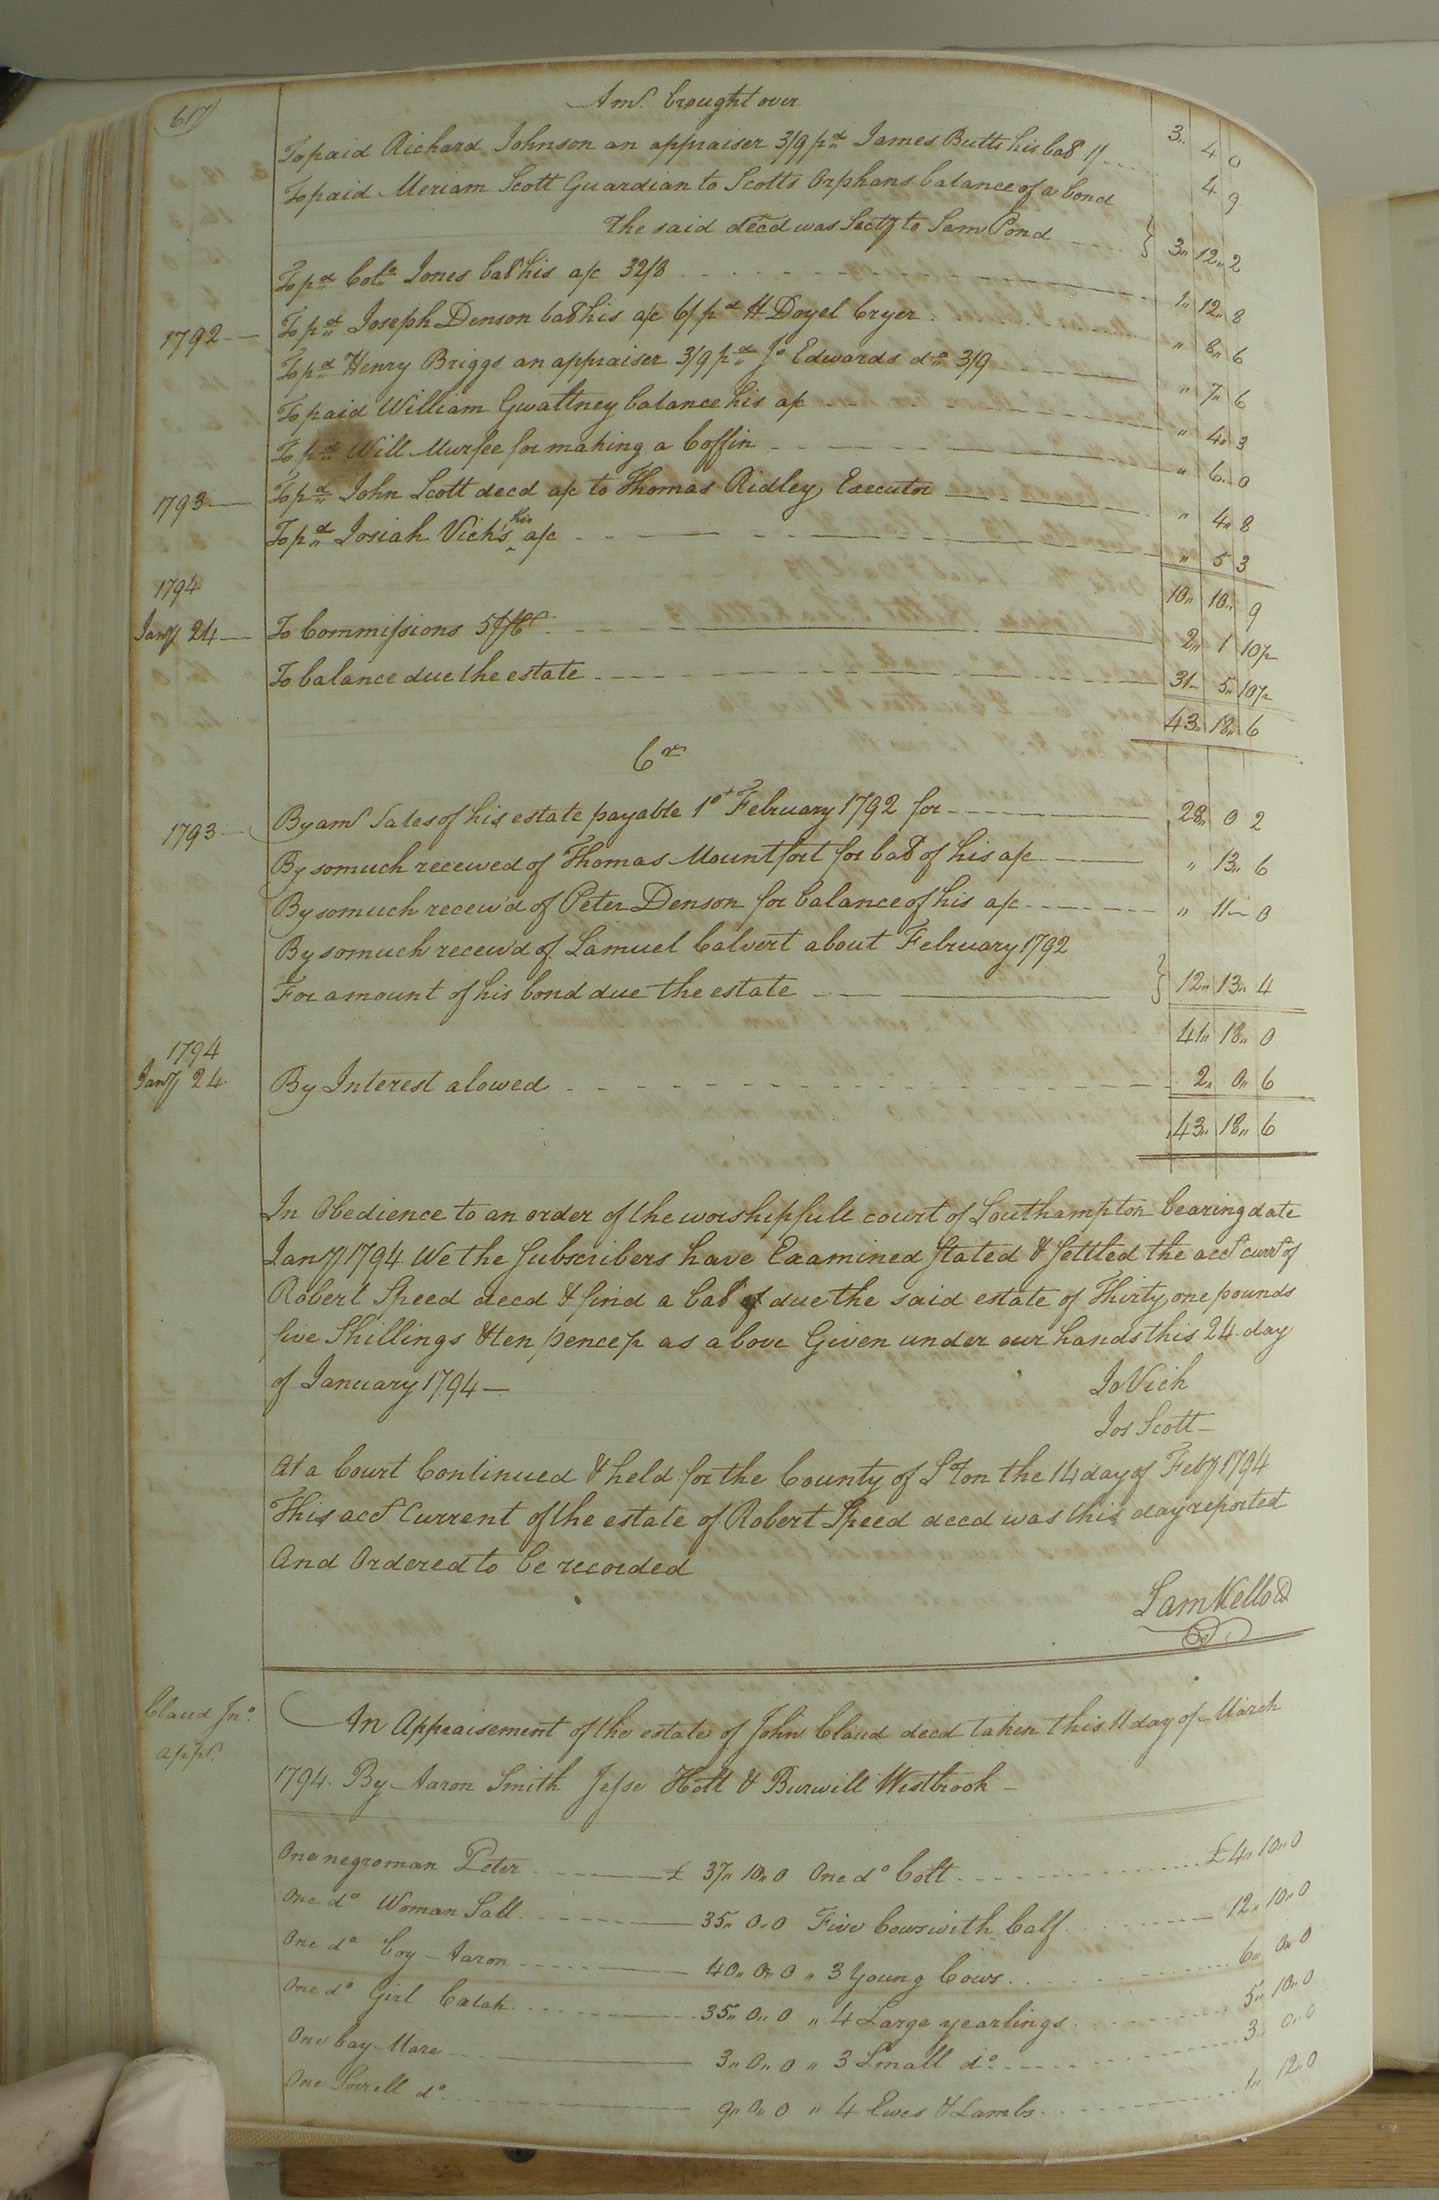 617
Amt. brought over 3,, 4 0
To paid Richard Johnson an appraiser 3/9 pd James Butts his bal 1/ 4 9
To paid Meriam Scott Guardian to Scotts Orphans balance of a bond
the said decd was Secty to Sam Pond } 3,, 12,, 2
To pd Jones bal his a/c 32/8 1,, 12,, 8
1792 To pd Joseph Denson bal his a/c 6/ pd H Doyel Cryer ,, 8,, 6
To pd Henry Briggs an appraiser 3/9 pd Jo Edwards do 3/9 ,, 7,, 6
To paid William Gwaltney balance his a/c ,, 4,, 3
To pd Will Murfee for making a Coffin ,, 6,, 0
1793 To pd John Scott decd a/c to Thomas Ridley Executor ,, 4,, 8
To pd Josiah Vick's his a/c ,, 5 3
1794 10,, 10,, 9
Jany 24 To Commissions 5 2,, 1 10½
To balance due the estate 31,, 5,, 10½
43,, 18,, 6
Cr
1793 By amt Sales of his estate payable 1st February 1792 for 28,, 0 2
By somuch received of Thomas Mountfort for bal of his a/c ,, 13,, 6
By somuch receiv'd of Peter Denson for balance of his a/c ,, 11 0
By somuch receiv'd of Samuel Calvert about February 1792
For amount of his bond due the estate } 12,, 13,, 4
41,, 18,, 0
1794
Jany 24 By Interest alowed 2,, 0,, 6
43,, 18,, 6
In Obedience to an order of the worshipfull court of Southampton bearing date
Jany 1794 We the Subscribers have Examined Stated & Settled the acct currt of
Robert Speed decd & find a bal due the said estate of Thirty one pounds
five Shillings & ten pence ½ as above Given under our hands this 24 day
of January 1794 — Jo Vick
Jos Scott —
At a Court Continued & held for the County of Ston the 14 day of Feby 1794
This acct Current of the estate of Robert Speed decd was this day reported
And Ordered to be recorded
Sam Kello
Claud Jno. An Appraisement of the estate of John Claud decd taken this 11 day of March
appt. 1794. By Aaron Smith Jesse Holt & Burwill Westbrook —
One negroman Peter £ 37,, 10,, 0 One do Colt £4,, 10,, 0
One do Woman Sall 35,, 0,, 0 Five Cows with Calf 12,, 10,, 0
One do boy Aaron 40,, 0,, 0 ,, 3 Young Cows 6,, 0,, 0
One do Girl 35,, 0,, 0 ,, 4 Large yearlings 5,, 10,, 0
One bay Mare 3,, 0,, 0 ,, 3 Small do 3,, 0,, 0
One Sorrell do 9,, 0,, 0 ,, 4 Ewes & Lambs 1,, 12,, 0